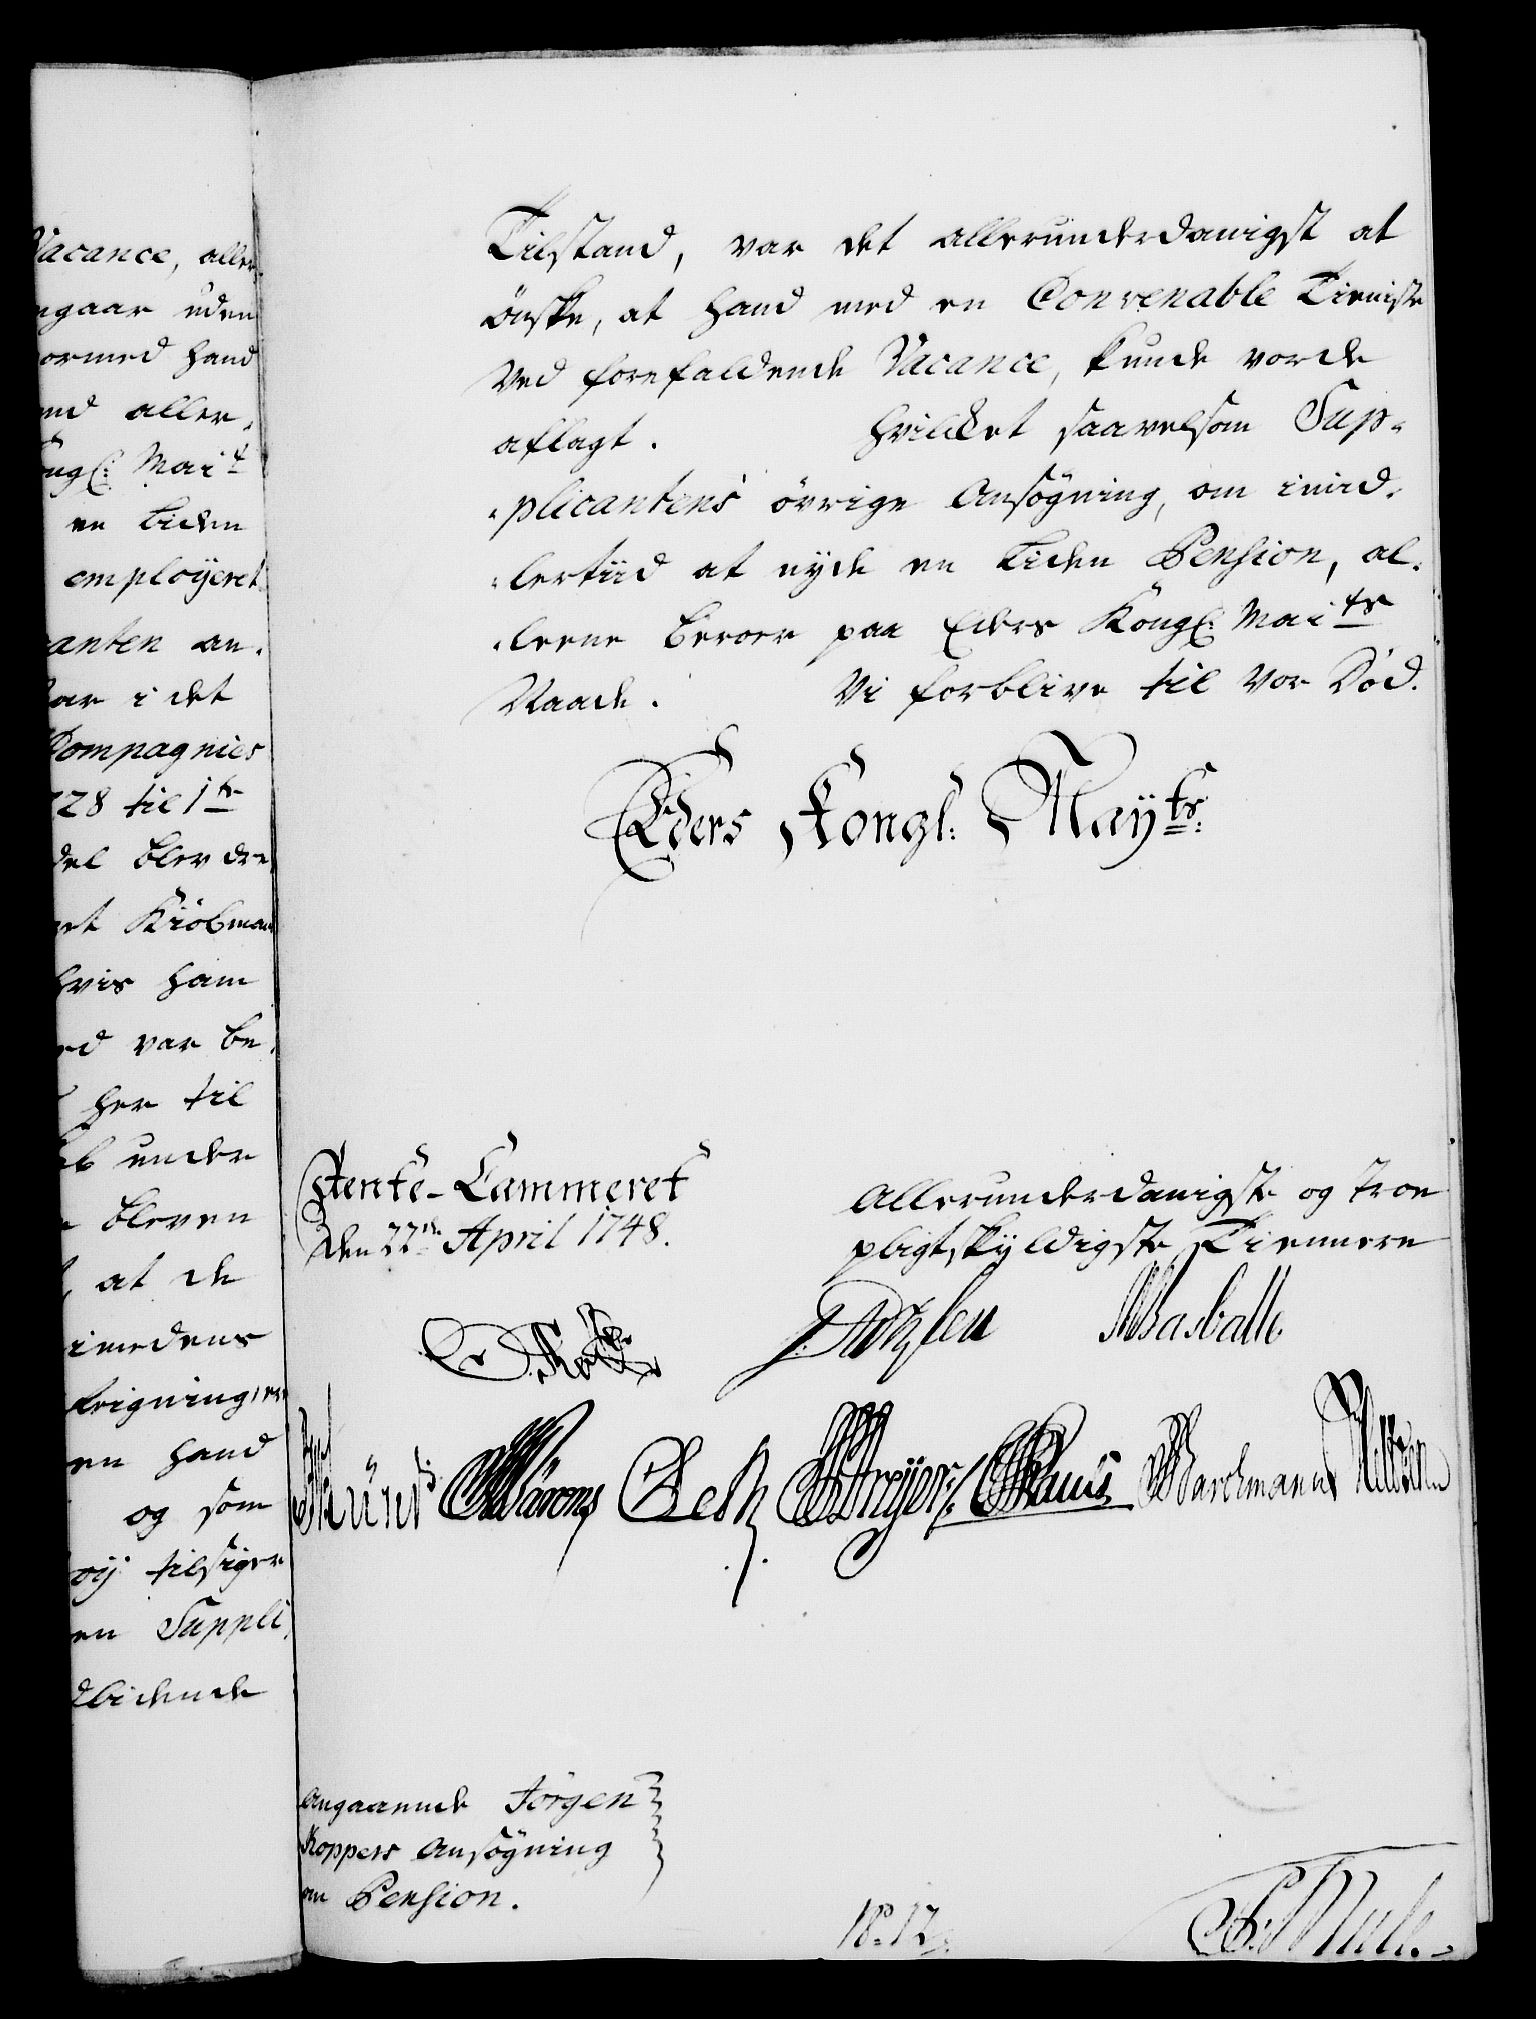 Vacance, aller,
ngaar uden
ormed hand
end aller,
ongl: Mai.t
en liden
employeret
anten an,
har i det
Compagnies
728 til 1te
del blev de
et Kiöbman
hvis ham
ed var be,
her til
ab under
bleven
at de
imedens
krigninger
en hand
og som
oy tilsiger
en Suppli,
dlidende
Tilstand, var det allerunderdanigst at
önske, at hand med en Convenable Tieniste
ved forefaldende Vacance, kunde vorde
aflagt. Hvilcket saavelsom Sup,
,plicantens övrige Ansögning, om imid,
,lertiid at nyde en liden Pension, al,
,lerne beroer paa Eders Kongl: Mai.ts
Naade. Vi forblive til vor Död.
Eders Kongl: Mayts:
Rente-Cammeret
den 22de April 1748.
Allerunderdanigste og troe
pligtskyldigste Tiennere
Holtzsen Masballe
Wärens Dreyer Pauli Barchmann
Angaaende Jörgen
Koppers Ansögning
om Pension.
18=12.